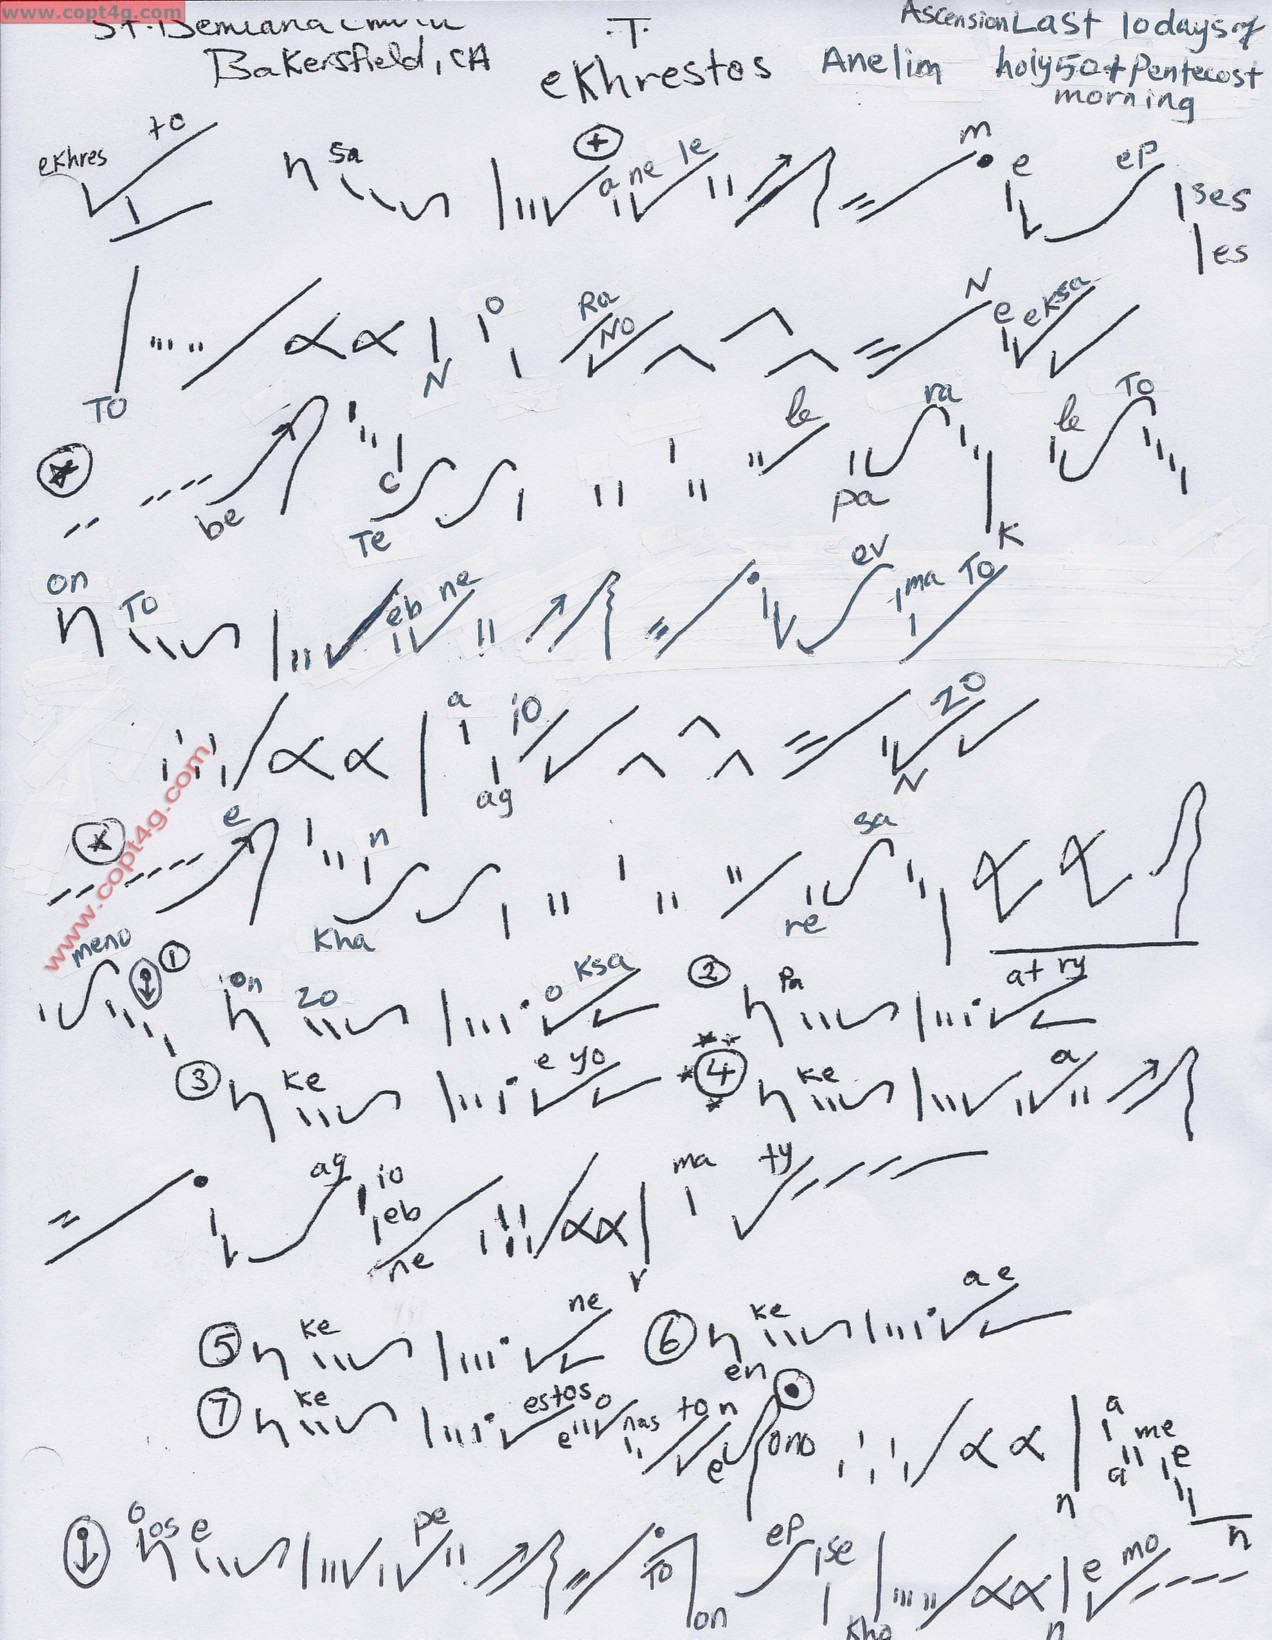 www.copt4g.com
St. Demiana
T. Ascension Last 10 days of
Bakersfield, CA ekhrestos Anelim holy 50 + Pentecost
morning
ekhres to n sa + a ne le m e ep ses
es
To N o Ra No N e eksa
be Te c le pa ra K le To
on To eb ne ev ma To
a ag io N zo
e n kha re sa
meno 1 on zo o ksa 2 pa at ry
3 ke e yo 4 ke a
ag io eb ne r ma ty
5 ke ne 6 ke a e
7 ke estos o e nas to n e en ono n a me a e n
o os e pe To on ep se kho n e mo
www.copt4g.com